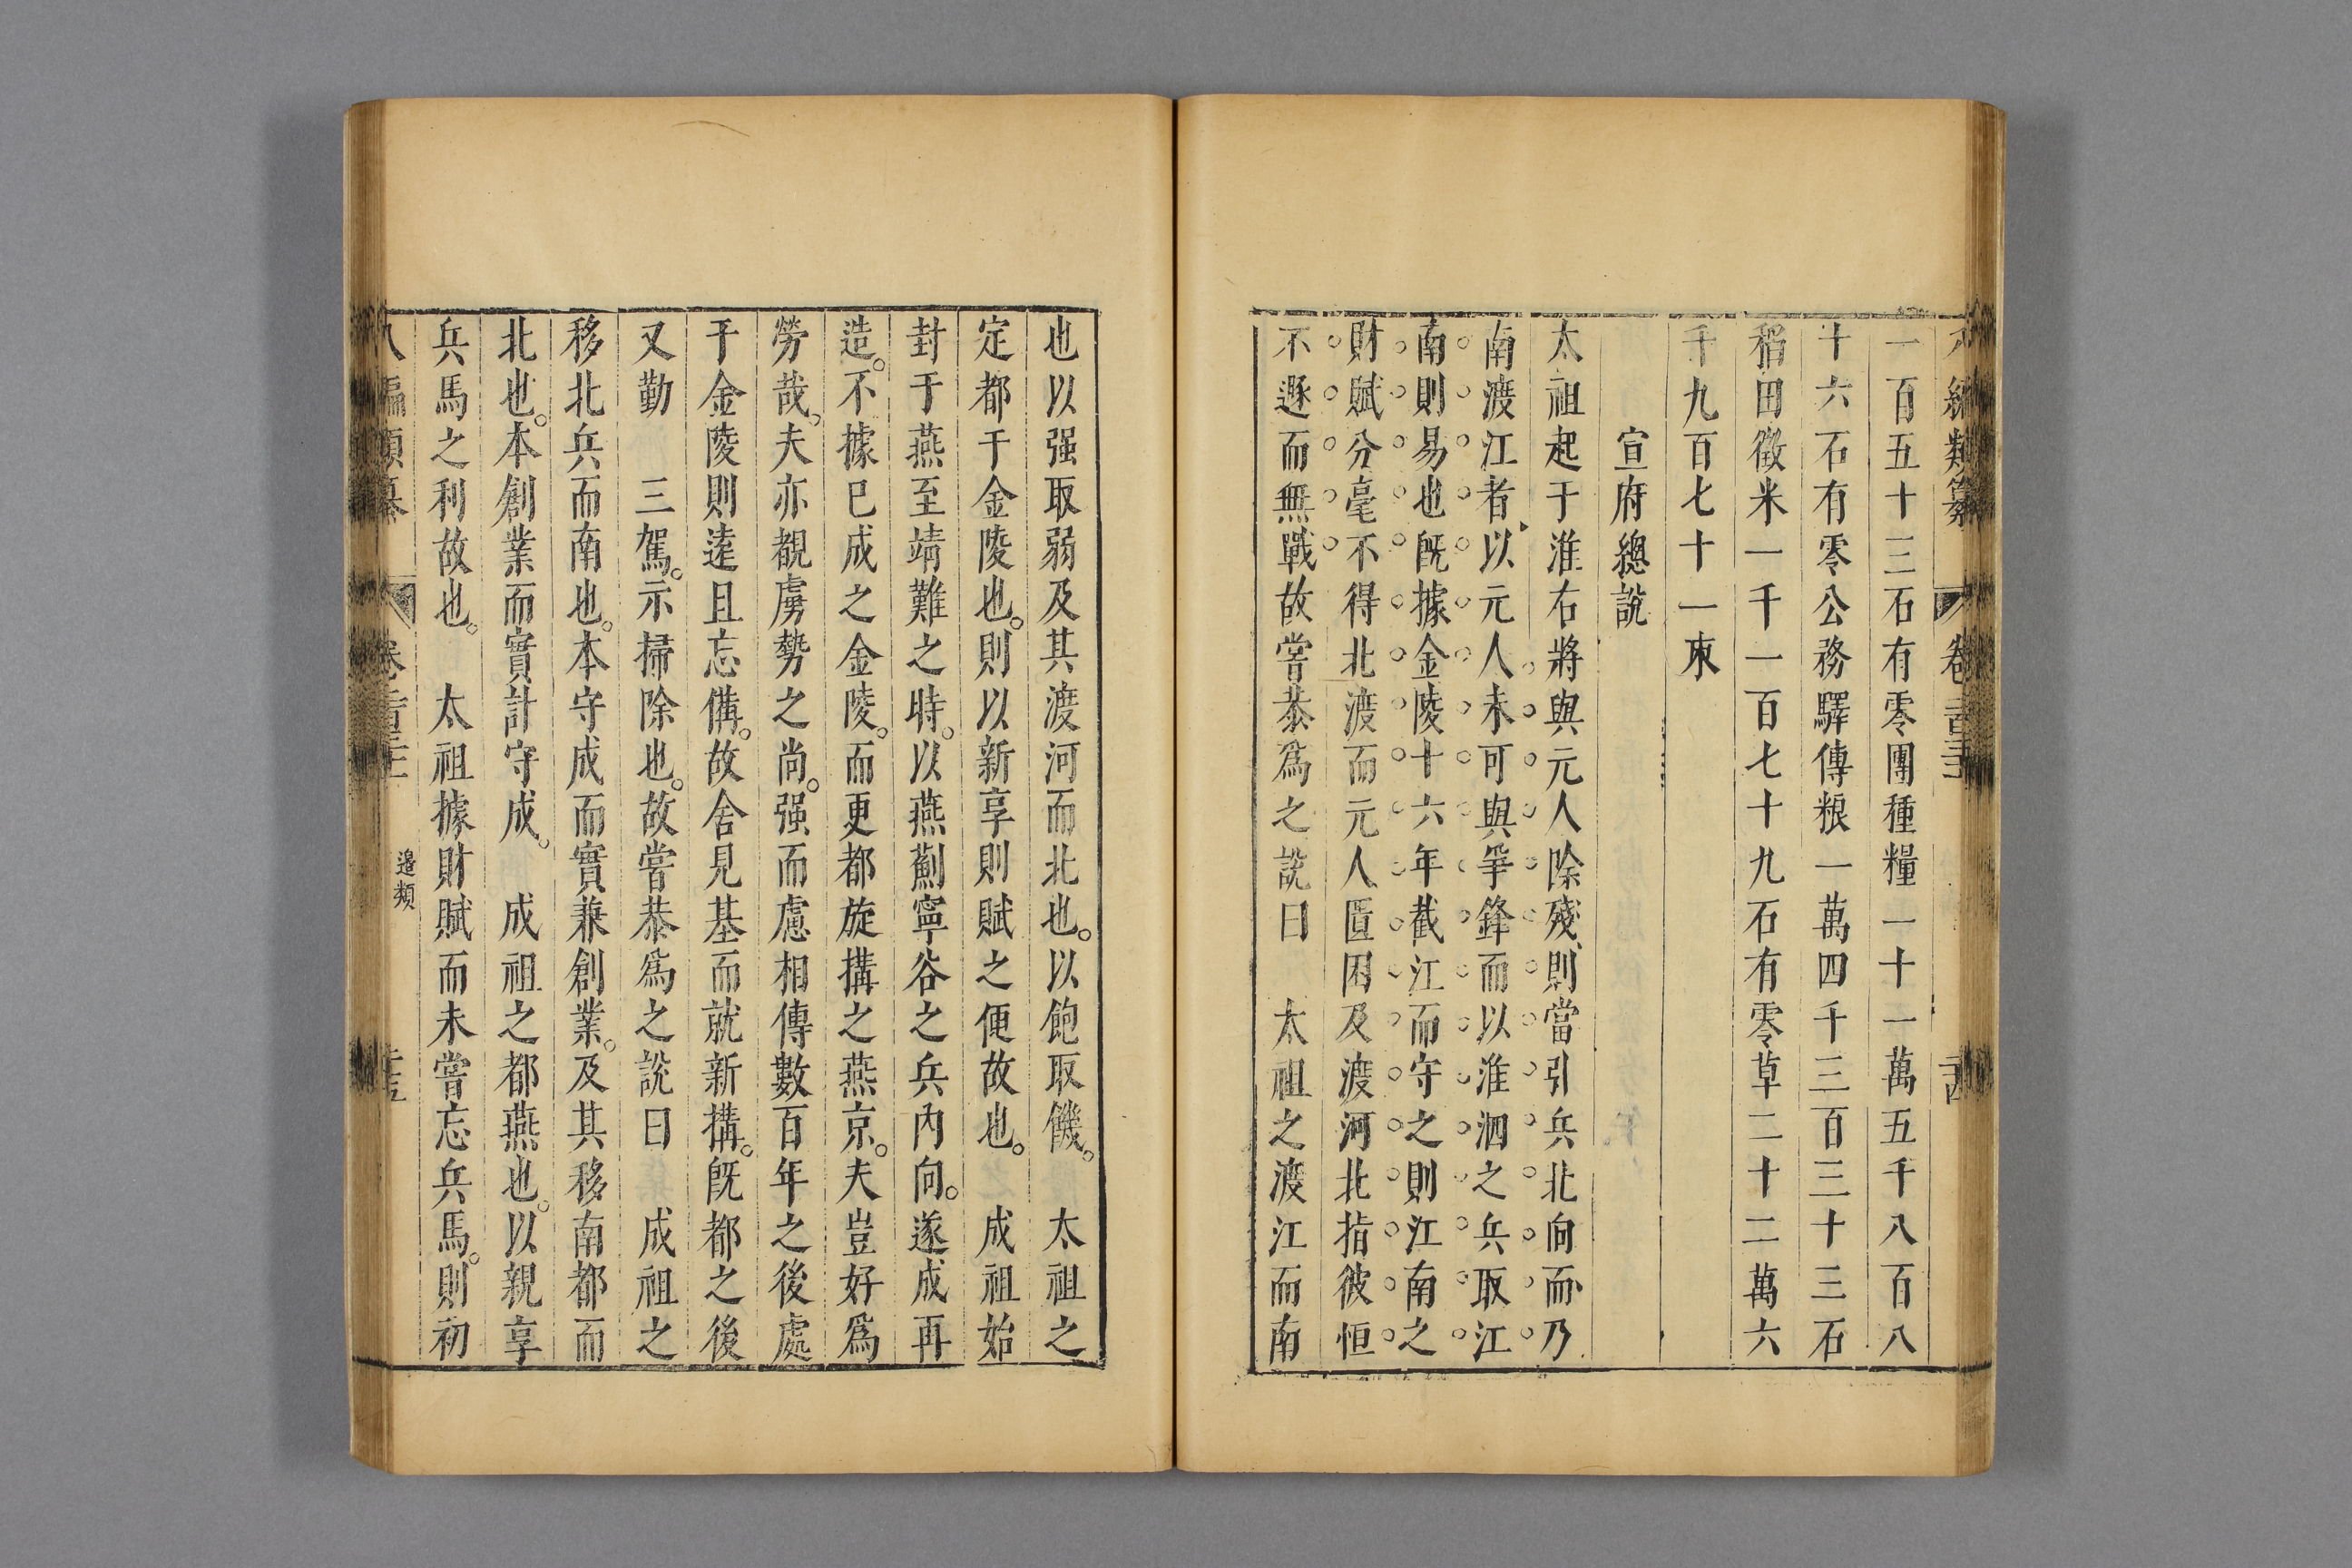 八編類纂 卷二百三十三 二十四
一百五十三石有零團種糧一十一萬五千八百八
十六石有零公務驛傳粮一萬四千三百三十三石
稻田徵米一千一百七十九石有零草二十二萬六
千九百七十一束
宣府總說
太祖起于淮右將與元人除殘則當引兵北向而乃
南渡江者以元人未可與爭鋒而以淮泗之兵取江
南則易也旣據金陵十六年截江而守之則江南之
財賦分毫不得北渡而元人匱困及渡河北指彼恒
不遯而無戰故嘗恭爲之說曰 太祖之渡江而南
也以强取弱及其渡河而北也。以飽取饑。 太祖之
定都于金陵也。則以新享則賦之便故也。 成祖始
封于燕至靖難之時。以燕薊寧谷之兵內向。遂成再
造。不據已成之金陵。而更都旋搆之燕京。夫豈好爲
勞哉。夫亦覩虜勢之尚。强而慮相傳數百年之後處
于金陵則遠且忘備。故舍見基而就新搆。旣都之後
又勤 三駕。示掃除也。故嘗恭爲之說曰 成祖之
移北兵而南也。本守成而實兼創業。及其移南都而
北也。本創業而實計守成。 成祖之都燕也。以親享
兵馬之利故也。 太祖據財賦而未嘗忘兵馬。則初
八編類纂 卷 邉類 二十五